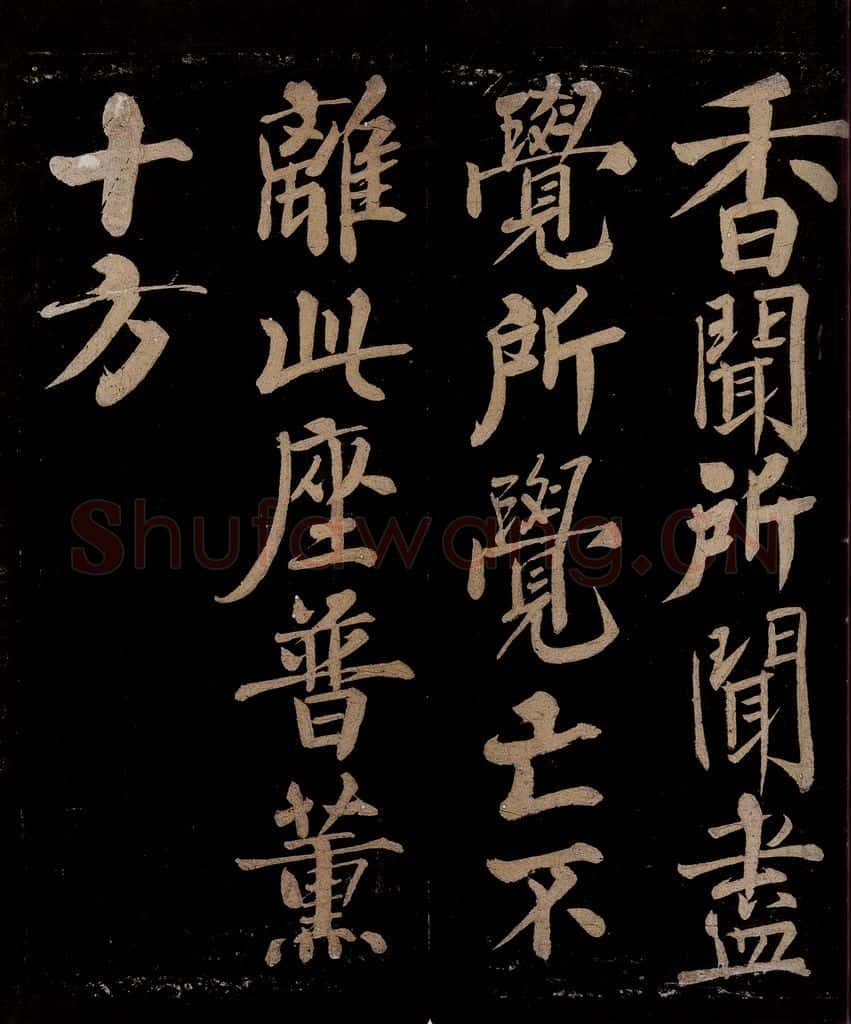 香聞所聞盡
覺所覺亡不
離此座普薰
十方
Shufawang.CN